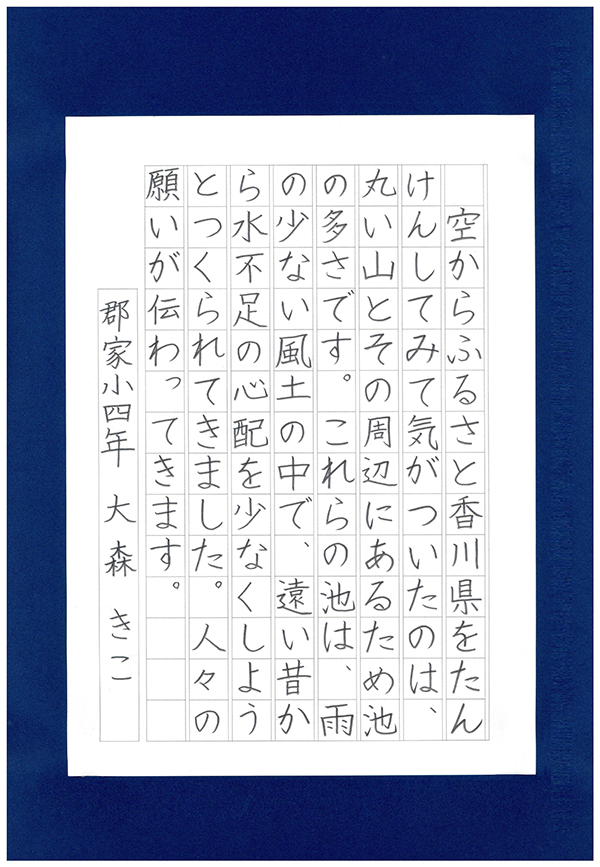 空からふるさと香川県をたん
けんしてみて気がついたのは、
丸い山とその周辺にあるため池
の多さです。これらの池は、雨
の少ない風土の中で、遠い昔か
ら水不足の心配を少なくしよう
とつくられてきました。人々の
願いが伝わってきます。
郡家小四年 大森きこ